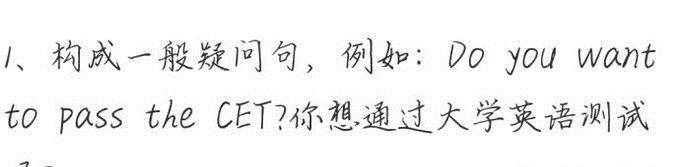 1、构成一般疑问句，例如：Do you want
to pass the CET?你想通过大学英语测试